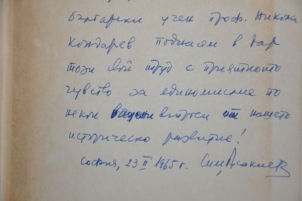 български учен проф. Никола
Кондарев поднасям в дар
този свой труд с приятното
чувство за единомислие по
някои въпроси от нашето
историческо развитие!
София, 23 II 1965 г.